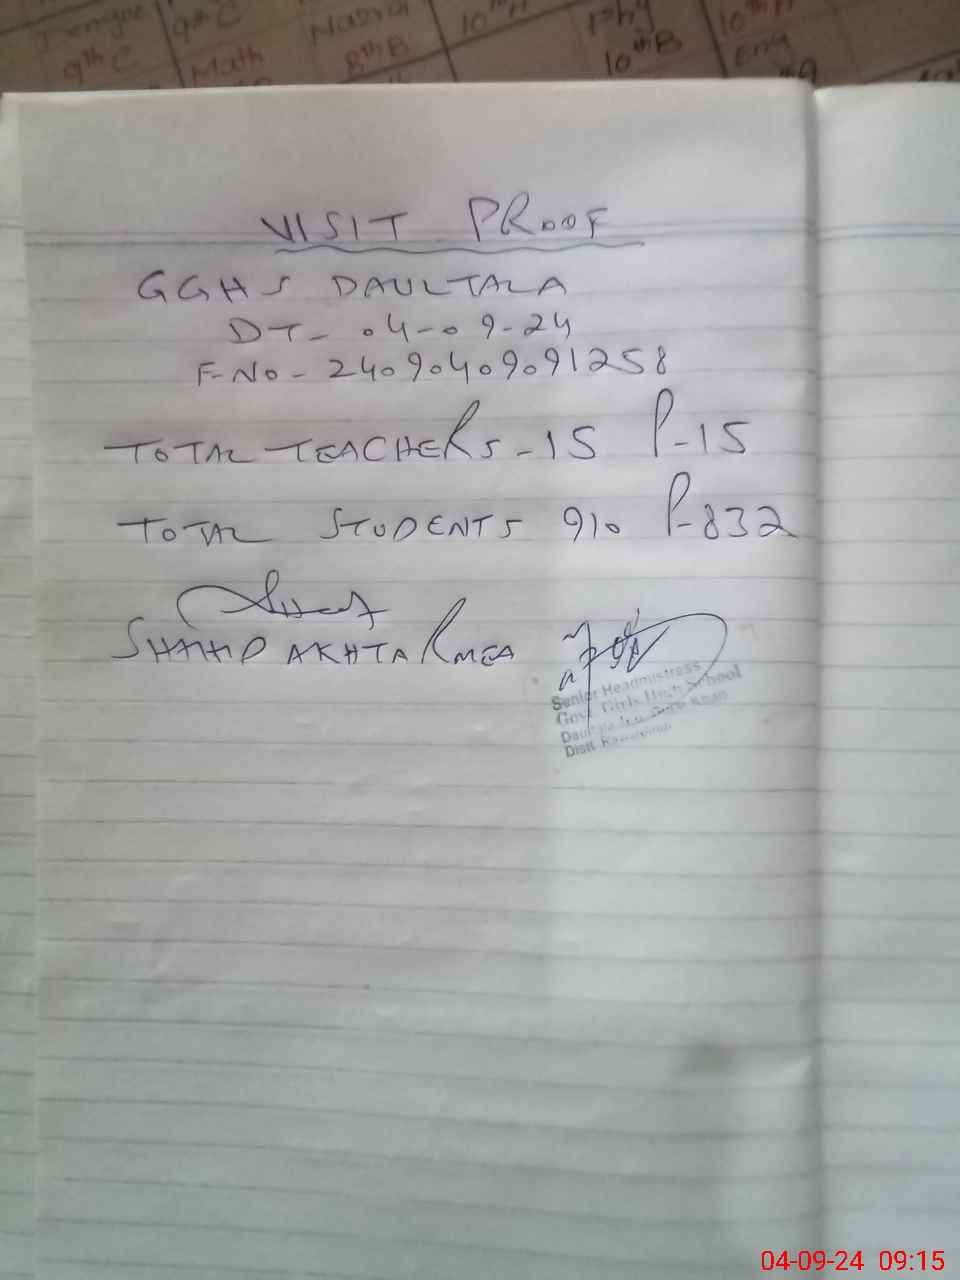 Nadra 10th A Phy 10th A
9th C 9th C 8th B 10th B Eng
Math
VISIT PROOF
GGHS DAULTALA
DT- 04-09-24
F-No- 2409040909 1258
TOTAL TEACHERS - 15 P-15
TOTAL STUDENTS 910 P-832
SHAHID AKHTAR MEA
Senior Headmistress
Govt. Girls High School
Daultala Khan
Distt Rawalpindi
04-09-24 09:15